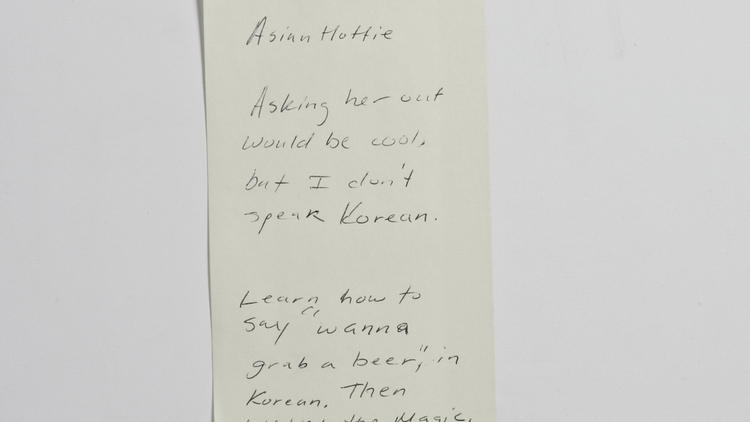 Asian Hottie
Asking her out
would be cool,
but I don't
speak Korean.
Learn how to
say "wanna
grab a beer," in
Korean. Then
the Magic.